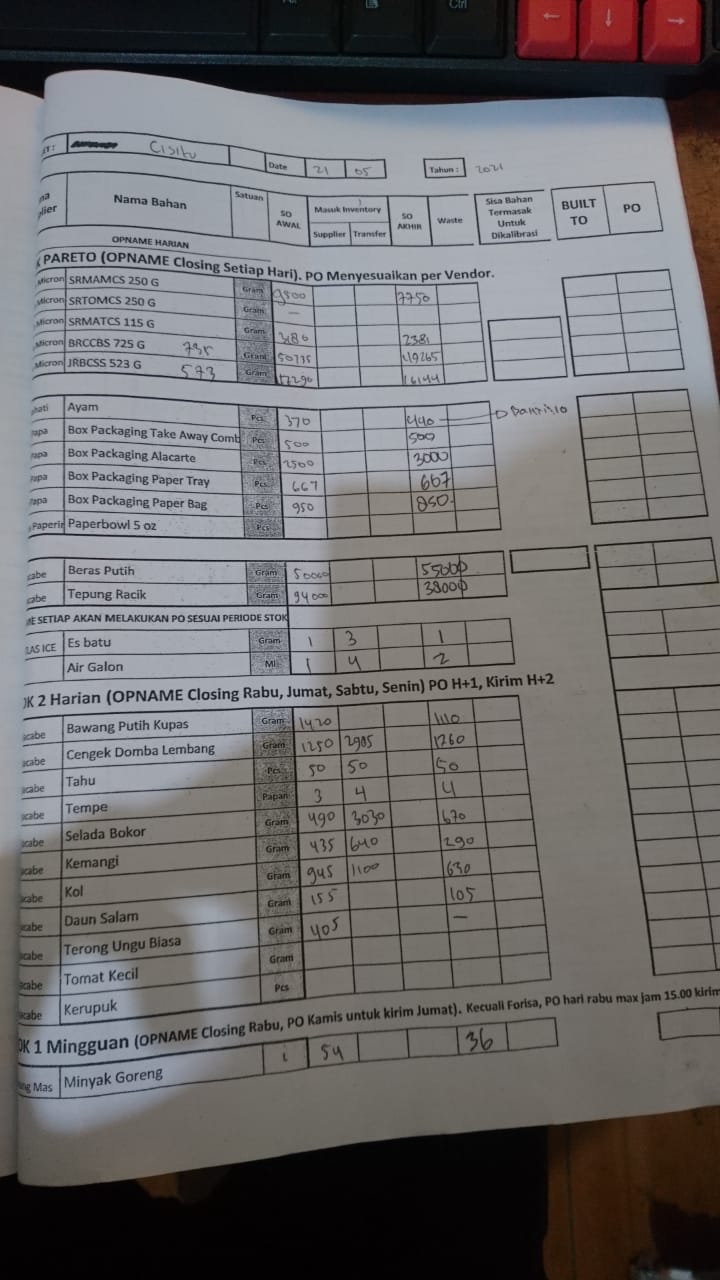 Ctrl
ET: Cisitu Date 21 05 Tahun: 2021
na
plier Nama Bahan Satuan SO AWAL Masuk Inventory Supplier Transfer SO AKHIR Waste Sisa Bahan Termasak Untuk Dikalibrasi BUILT TO PO
OPNAME HARIAN
K PARETO (OPNAME Closing Setiap Hari). PO Menyesuaikan per Vendor.
Micron SRMAMCS 250 G Gram 9500 7750
Micron SRTOMCS 250 G Gram –
Micron SRMATCS 115 G Gram 3186 2381
Micron BRCCBS 725 G 735 Gram 50735 49265
Micron JRBCSS 523 G 573 Gram 17290 16144
ehati Ayam Pcs 370 440
apa Box Packaging Take Away Comb Pcs 500 500
apa Box Packaging Alacarte Pcs 2500 3000
apa Box Packaging Paper Tray Pcs 667 667
apa Box Packaging Paper Bag Pcs 950 850
Paperin Paperbowl 5 oz Pcs
cabe Beras Putih Gram 50000 55000
cabe Tepung Racik Gram 94000 38000
ME SETIAP AKAN MELAKUKAN PO SESUAI PERIODE STOK
LAS ICE Es batu Gram 1 3 1
Air Galon Ml 1 4 2
OK 2 Harian (OPNAME Closing Rabu, Jumat, Sabtu, Senin) PO H+1, Kirim H+2
acabe Bawang Putih Kupas Gram 1420 1110
acabe Cengek Domba Lembang Gram 1250 2985 1260
acabe Tahu Pcs 50 50 50
acabe Tempe Papan 3 4 4
acabe Selada Bokor Gram 490 3030 670
acabe Kemangi Gram 435 640 290
acabe Kol Gram 945 1100 630
acabe Daun Salam Gram 155 105
acabe Terong Ungu Biasa Gram 405 –
acabe Tomat Kecil Gram
acabe Kerupuk Pcs
OK 1 Mingguan (OPNAME Closing Rabu, PO Kamis untuk kirim Jumat). Kecuali Forisa, PO hari rabu max jam 15.00 kirim
ng Mas Minyak Goreng 54 36